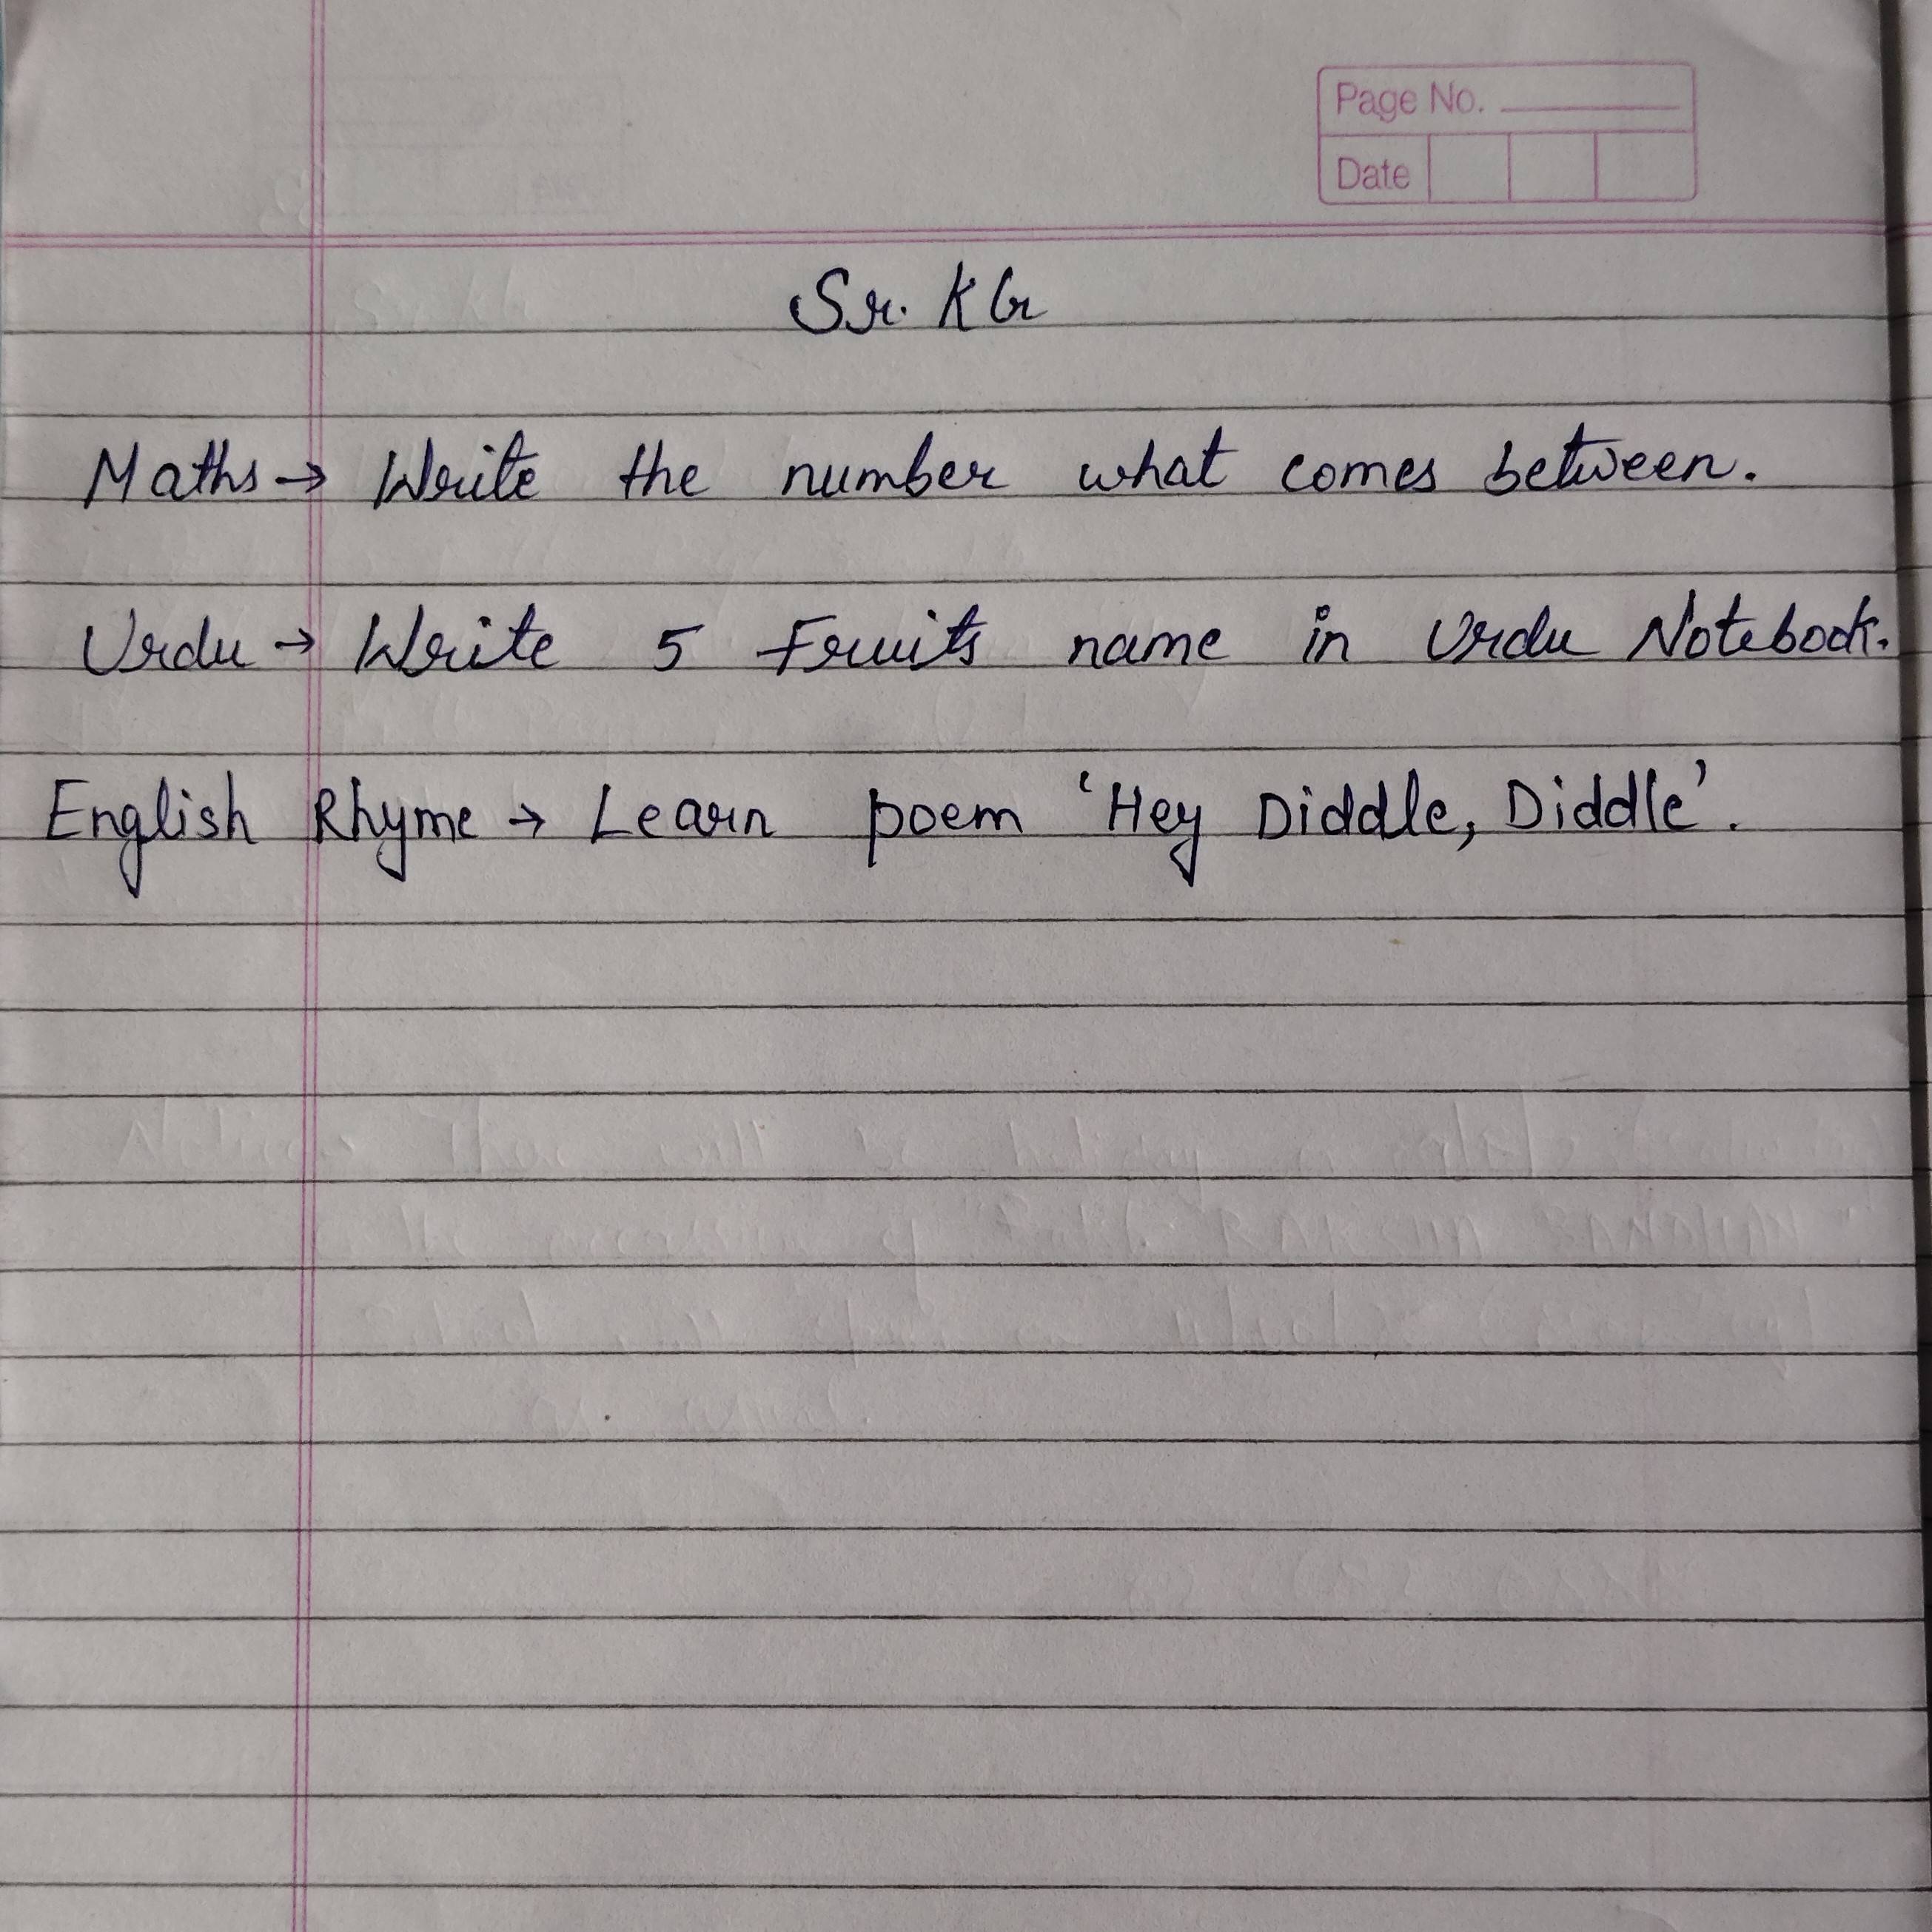 Page No.
Date
Sr. KG
Maths → Write the number what comes between.
Urdu → Write 5 Fruits name in Urdu Notebook.
English Rhyme → Learn poem ‘Hey Diddle, Diddle’.